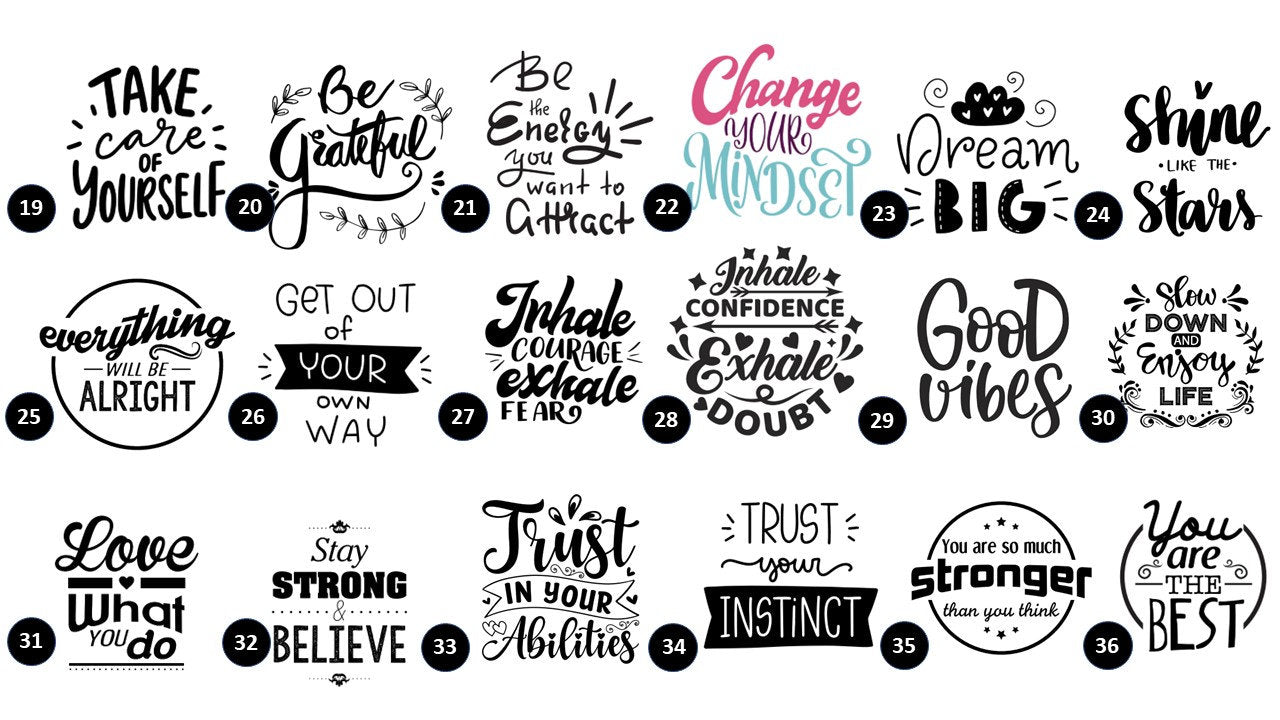 TAKE
care
OF
YOURSELF
19
Be
Grateful
20
Be
the
Energy
you
want to
Attract
21
Change
YOUR
MiNDSET
22
Dream
BIG
23
Shine
LIKE THE
Stars
24
everything
WILL BE
ALRIGHT
25
GET OUT
of
YOUR
OWN
WAY
26
Inhale
COURAGE
exhale
FEAR
27
Inhale
CONFIDENCE
Exhale
DOUBT
28
GooD
vibes
29
Slow
DOWN
AND
Enjoy
LIFE
30
Love
What
YOU do
31
Stay
STRONG
&
BELIEVE
32
Trust
IN YOUR
Abilities
33
TRUST
your
INSTiNCT
34
You are so much
stronger
than you think
35
You
are
THE
BEST
36